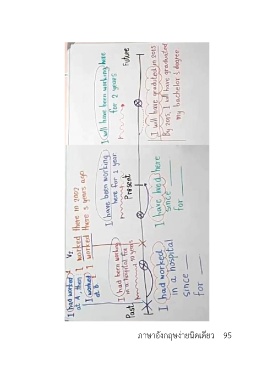 I (had worked)
at A, then
I (worked)
at B.
V2
I worked there in 2002
I worked there 5 years ago
I had been working
in a hospital for
10 years
Past
I had worked
in a hospital
since
for
I have been working
here for 1 year
Present
I have lived here
since
for
I will have been working here
for 2 years
Future
I will have graduated in 2025
By 2025, I will have graduated
my bachelor's degree
ภาษาอังกฤษง่ายนิดเดียว 95